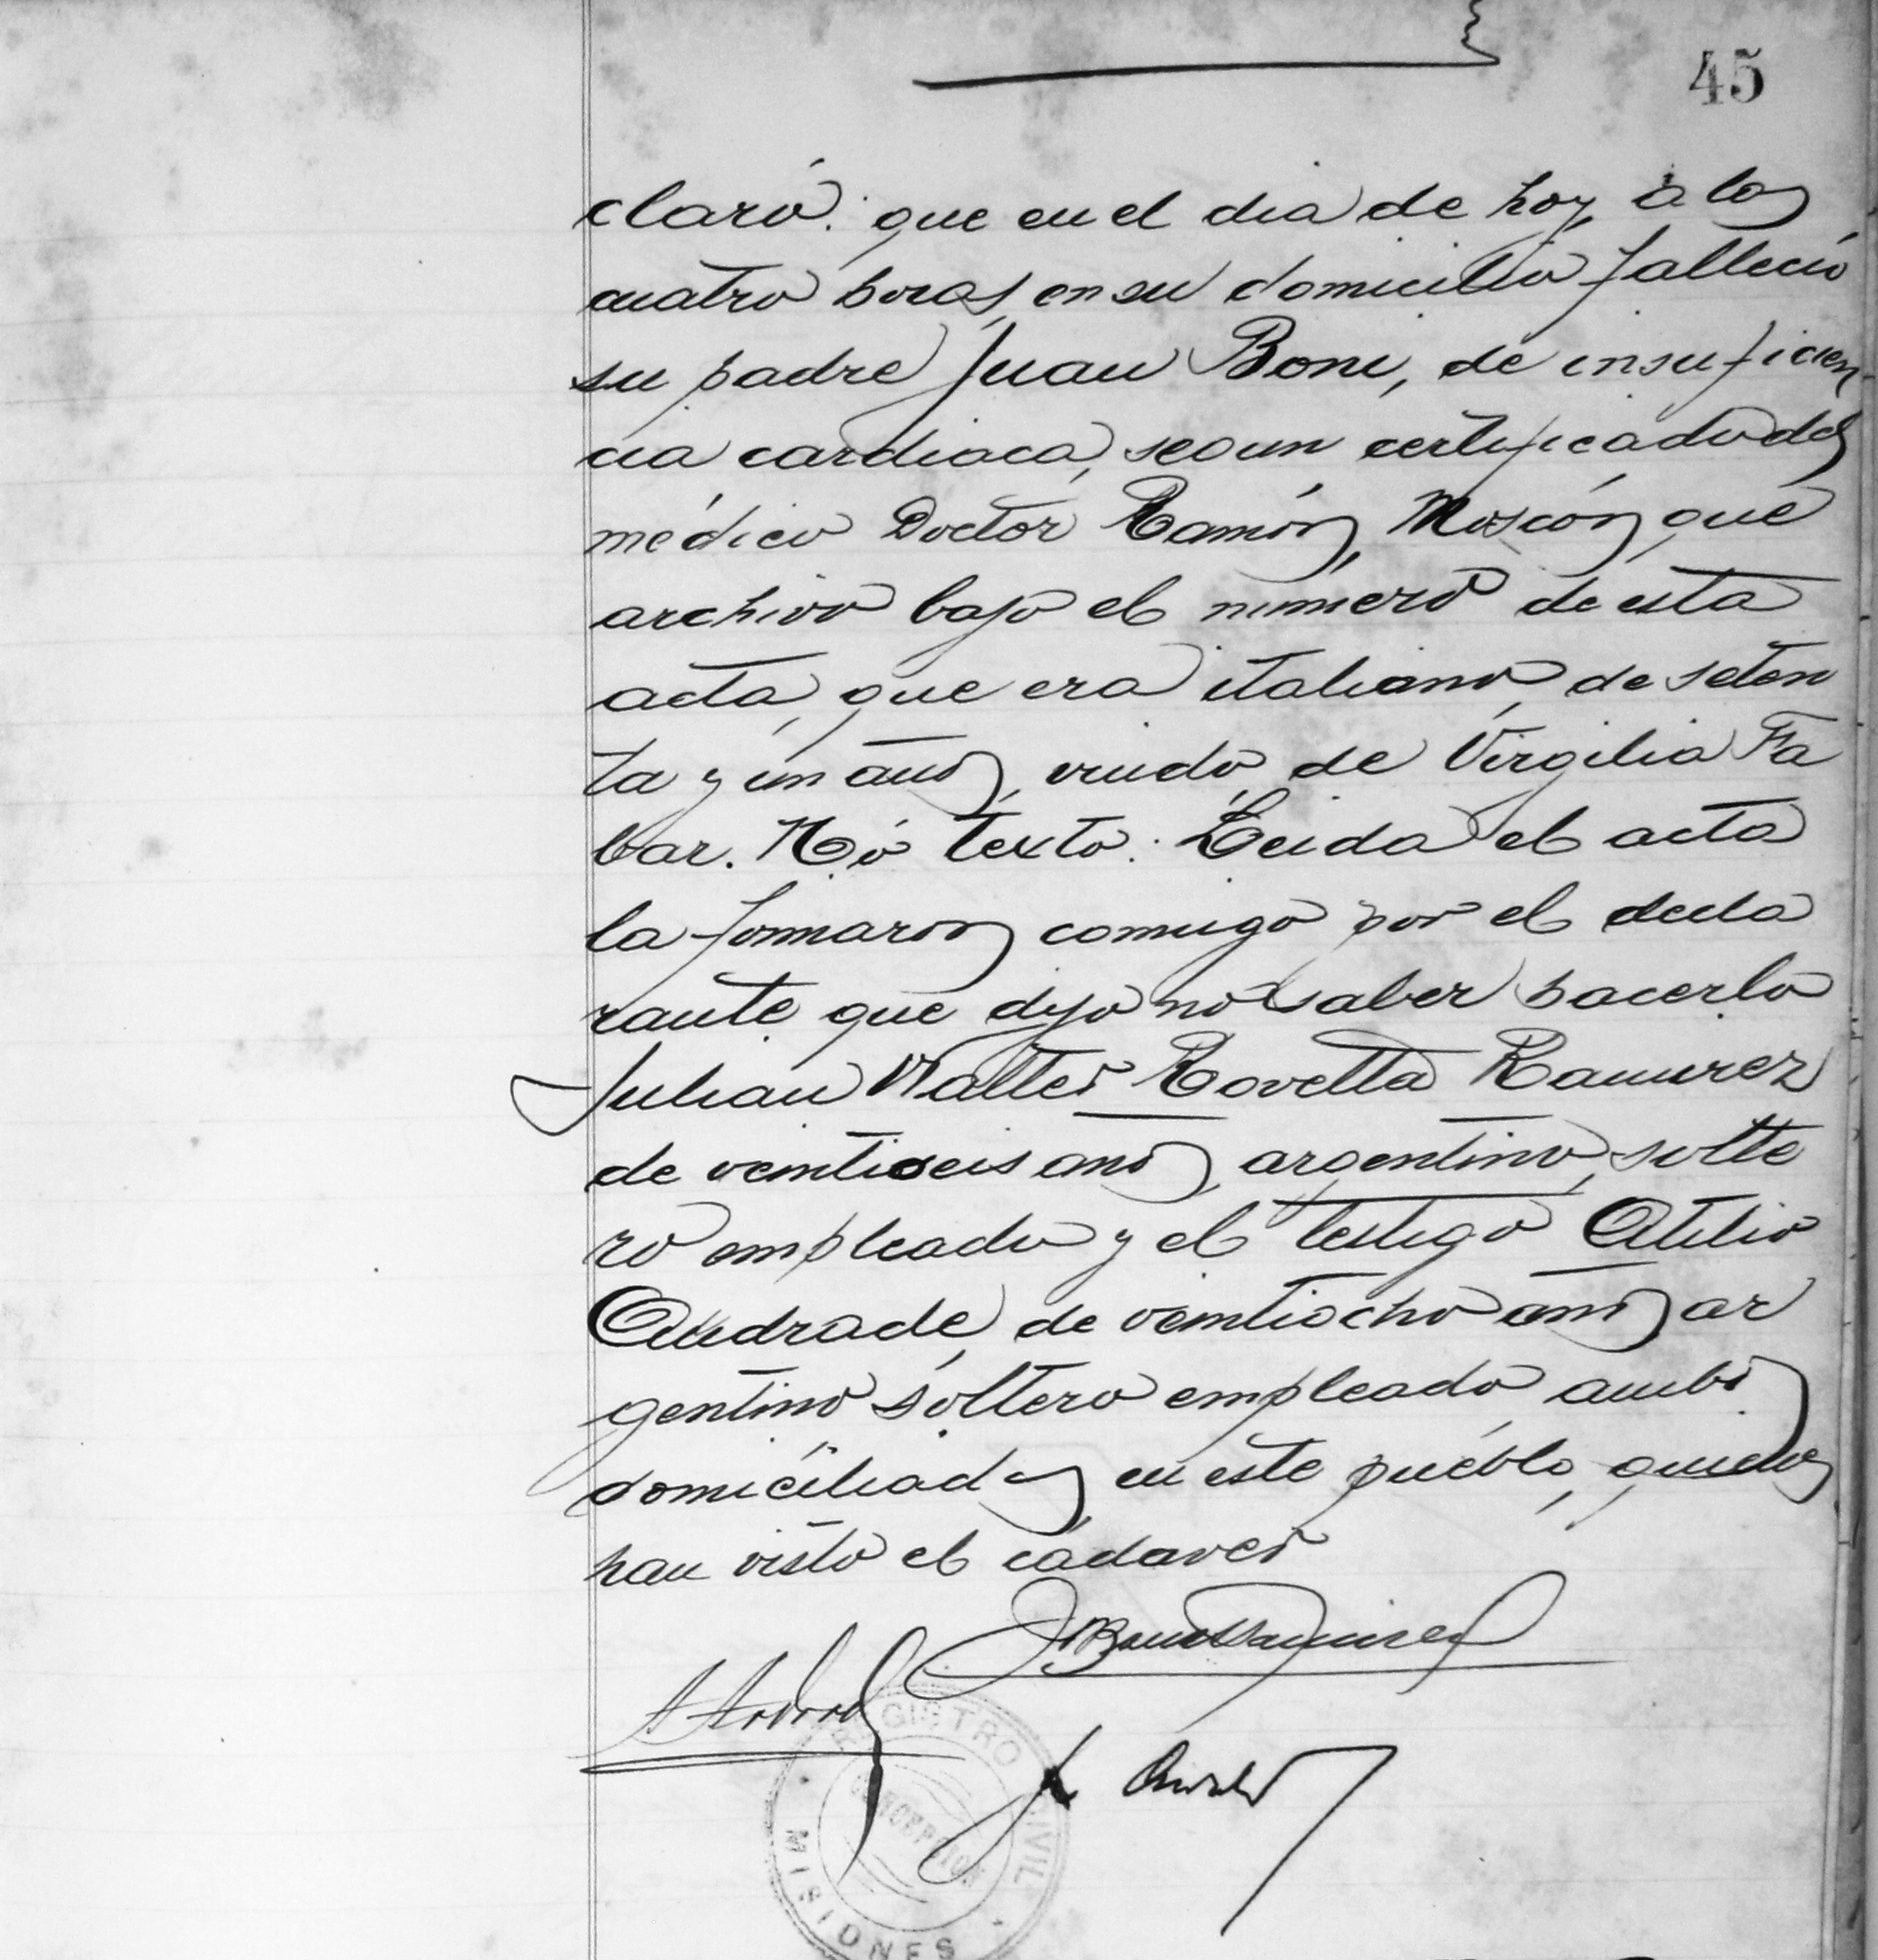 45
claró: que en el dia de hoy, á las
cuatro horas, en su domicilio falleció
su padre Juan Boni, de insuficien
cia cardiaca, segun certificado del
médico Doctor Ramón, que
archivo bajo el número de esta
acta, que era italiano, de seten
ta y un años, viudo, de Virgilia Fa
bar. Nó textó. Leida el acta
la firmaron conmigo por el decla
rante que dijo no saber hacerlo
Julian Walter Rovetta Ramirez
de veintiseis años, argentino, solte
ro empleado y el testigo Atilio
Andrade, de veintiocho años ar
gentino soltero empleado ambos
domiciliados en este pueblo, quienes
han visto el cadaver
REGISTRO CIVIL
MISIONES